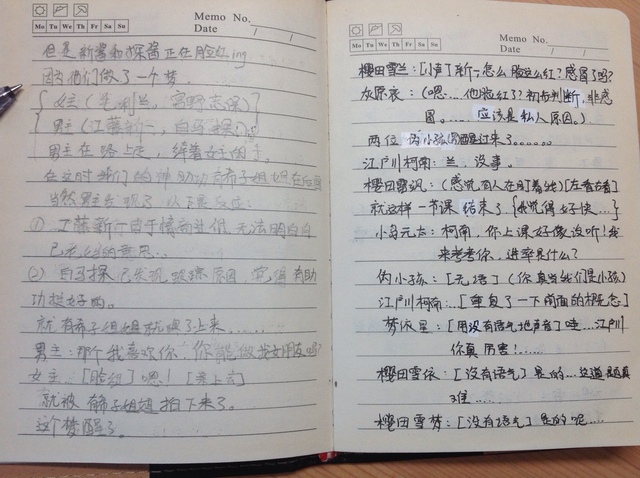 Memo No.
Mo Tu We Th Fr Sa Su
Date / /
但是新酱和探酱正在脸红ing
因为他们做了一个梦。
女主(毛利兰,宫野志保)
男主(工藤新一,白马探)
男主在路上走,
在这时我们的神助功有希子姐姐在后面
当然男主发现了以下是反应:
① 工藤新一由于情商过低无法明白自
己老妈的意思..
② 白马探已发现跟踪原因,觉得有助
功挺好的。
就有希子姐姐就跟了上来......
男主:那个我喜欢你,你能做我女朋友吗?
女主:[脸红]嗯![亲上去]
就被有希子姐姐拍下来了。
这个梦醒了。
Memo No.
Mo Tu We Th Fr Sa Su
Date / /
樱田雪兰:[小声]新一怎么脸这么红?感冒了吗?
灰原哀:(嗯....他脸红了?初步判断,非感
冒。......应该是私人原因。)
两位伪小孩醒过来了。。。。。。
江户川柯南:兰,没事。
樱田雪讽:(感觉有人在盯着我)[左看右看]
就这样一节课结束了{我觉得好快...}
小岛元太:柯南,你上课好像没听!我
来考考你,进率是什么?
伪小孩:[无语](你真当我们是小孩)
江户川柯南:[重复了一下前面的概念]
梦依星:[用没有语气地声音]哇...江户川
你真厉害!.....
樱田雪依:[没有语气]是的...这道题真
难....
樱田雪梦:[没有语气]是的呢....